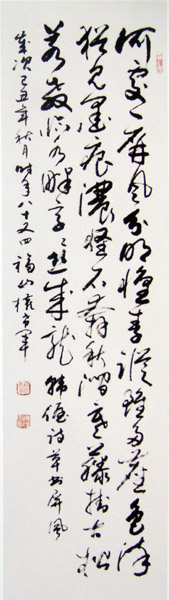 何處一屏风分明懷素蹤雖多塵色染
猶見墨痕濃怪石奔秋澗寒藤掛古松
若教临水畔字〻恐成龍 韓偓詩草书屏風
歲次己丑年秋月時年八十又四福山